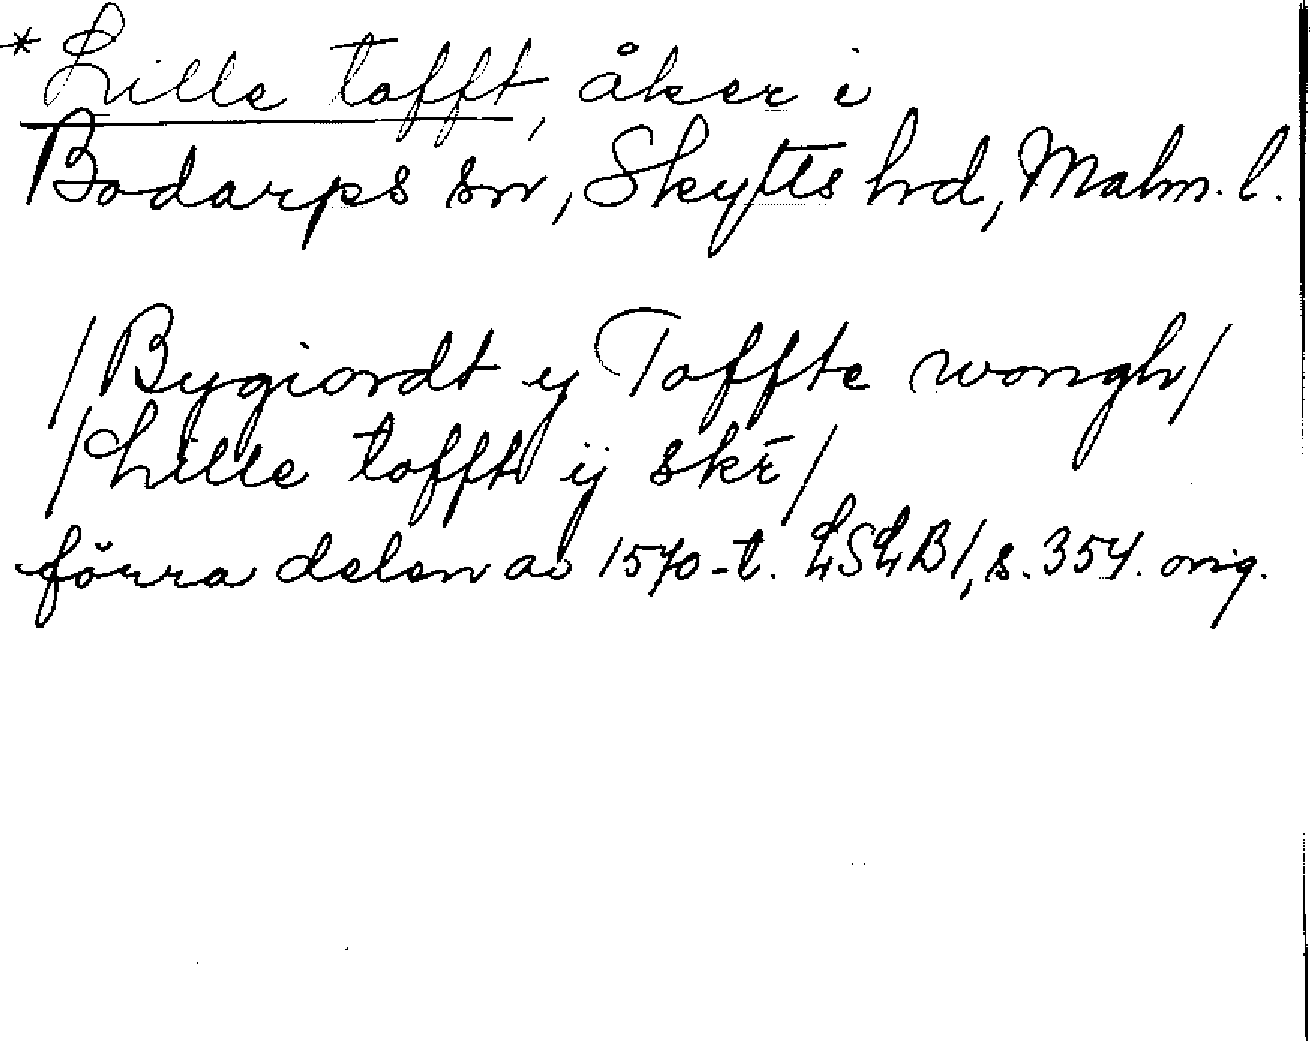 *Lille tofft, åker i
Bodarps sn, Skytts hd, Malm. l.
/Bygiordt y Toffte wongh/
/Lille tofft ij skr̄/
förra delen av 1570-t. LSLB1, s. 354. orig.